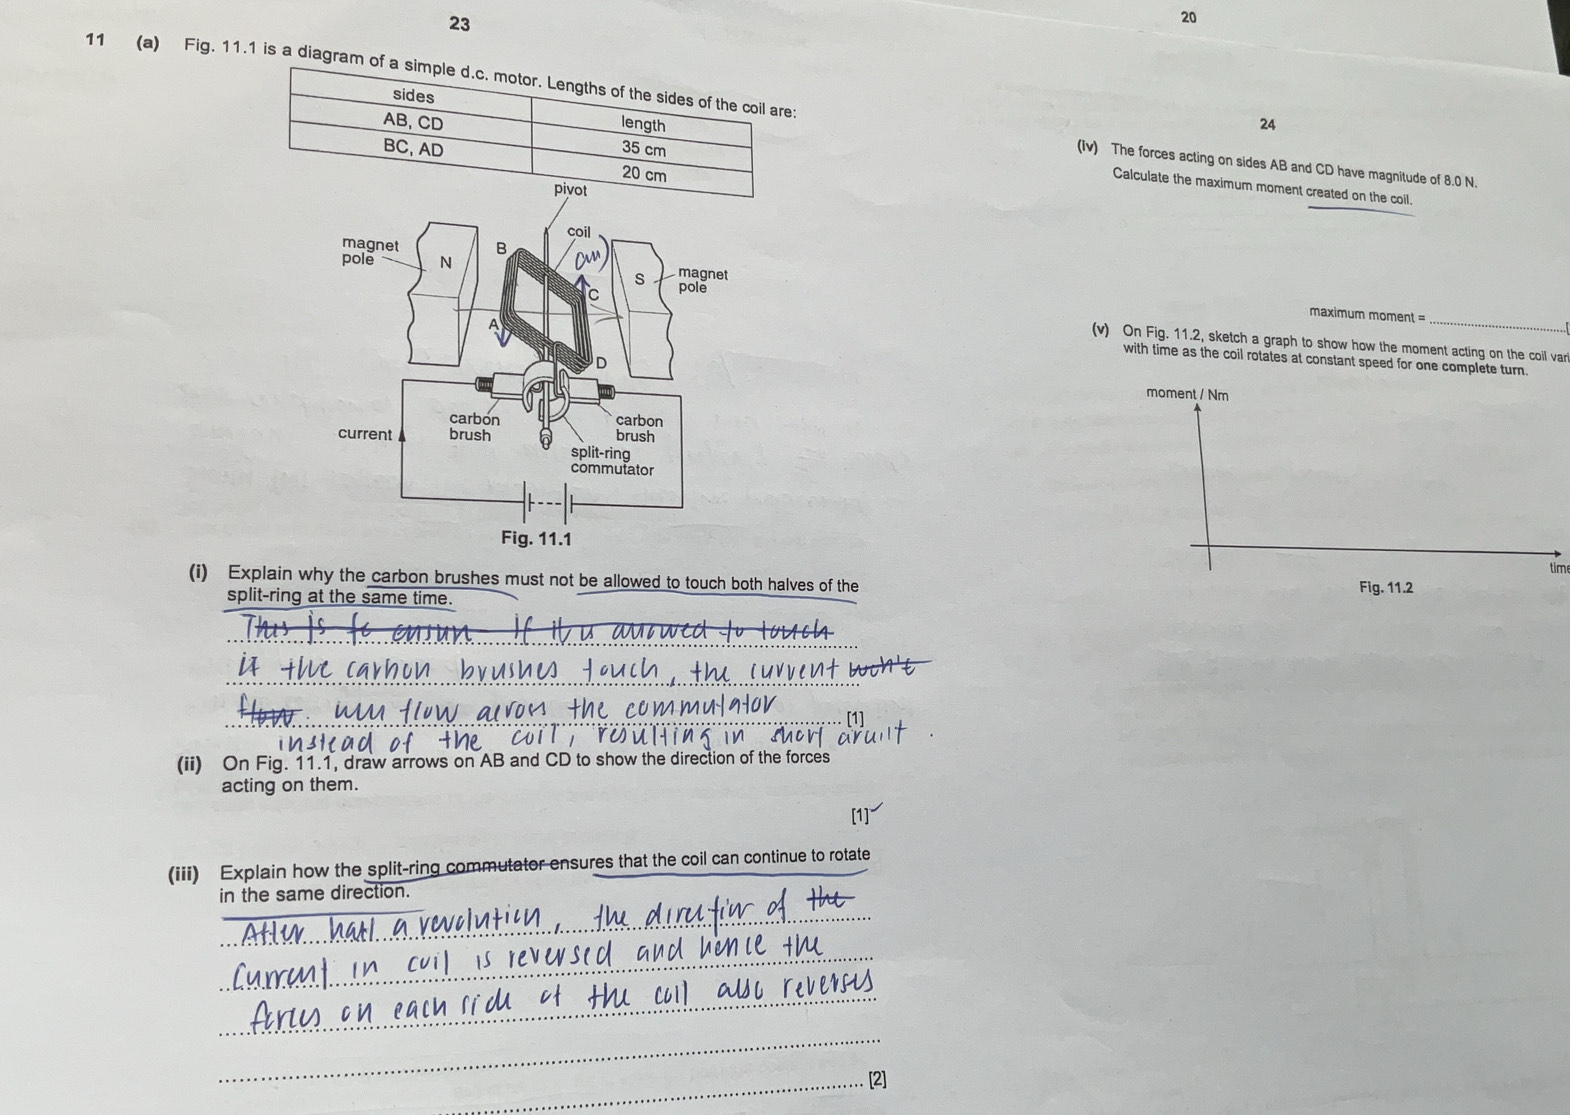 23
11 (a) Fig. 11.1 is a diagram of a simple d.c. motor. Lengths of the sides of the coil are:
sides length
AB, CD 35 cm
BC, AD 20 cm
pivot
coil
magnet pole
N
B
S
magnet pole
C
A
D
carbon brush
carbon brush
current
split-ring commutator
Fig. 11.1
(i) Explain why the carbon brushes must not be allowed to touch both halves of the
split-ring at the same time.
This is to ensure If it is allowed to touch
if the carbon brushes touch, the current won't
flow. will flow across the commutator [1]
instead of the coil, resulting in short circuit.
(ii) On Fig. 11.1, draw arrows on AB and CD to show the direction of the forces
acting on them.
[1]
(iii) Explain how the split-ring commutator ensures that the coil can continue to rotate
in the same direction.
After half a revolution, the direction of the
current in coil is reversed and hence the
forces on each side of the coil also reverses
[2]
20
24
(iv) The forces acting on sides AB and CD have magnitude of 8.0 N.
Calculate the maximum moment created on the coil.
maximum moment =
(v) On Fig. 11.2, sketch a graph to show how the moment acting on the coil vari
with time as the coil rotates at constant speed for one complete turn.
moment / Nm
time
Fig. 11.2